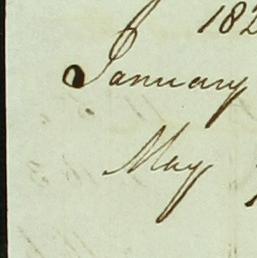 182
January
May